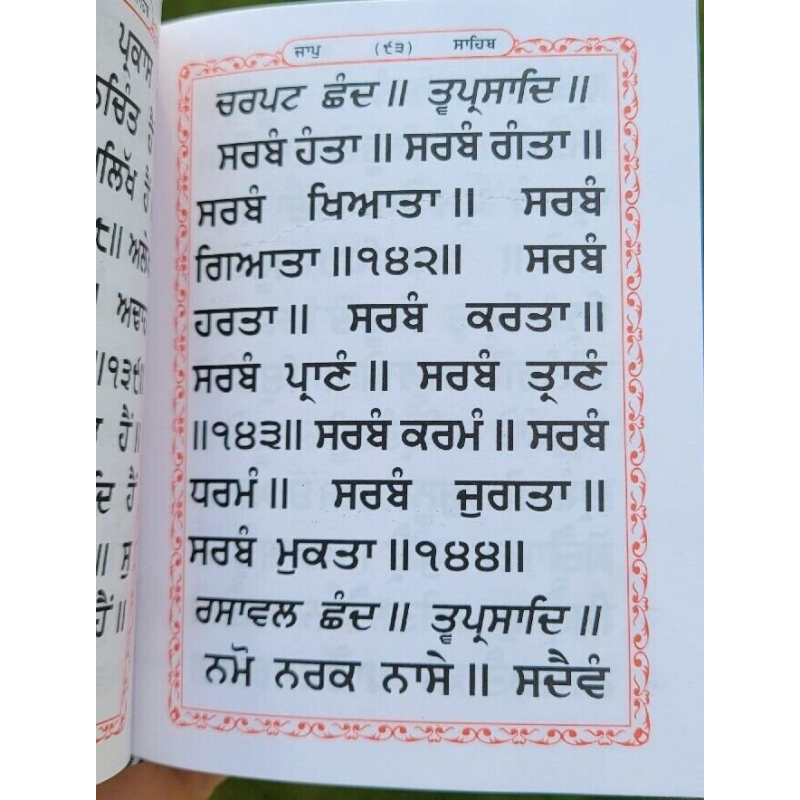 ਪ੍ਰਕਾਸ
ਅਲੇ
ਹੈਂ॥
ਜਾਪੁ (੯੩) ਸਾਹਿਬ
ਚਰਪਟ ਛੰਦ॥ ਤ੍ਵਪ੍ਰਸਾਦਿ॥
ਸਰਬੰ ਹੰਤਾ॥ ਸਰਬੰ ਗੰਤਾ॥
ਸਰਬੰ ਖਿਆਤਾ॥ ਸਰਬੰ
ਗਿਆਤਾ॥੧੪੨॥ ਸਰਬੰ
ਹਰਤਾ॥ ਸਰਬੰ ਕਰਤਾ॥
ਸਰਬੰ ਪ੍ਰਾਣੰ॥ ਸਰਬੰ ਤ੍ਰਾਣੰ
॥੧੪੩॥ ਸਰਬੰ ਕਰਮੰ॥ ਸਰਬੰ
ਧਰਮੰ॥ ਸਰਬੰ ਜੁਗਤਾ॥
ਸਰਬੰ ਮੁਕਤਾ॥੧੪੪॥
ਰਸਾਵਲ ਛੰਦ॥ ਤ੍ਵਪ੍ਰਸਾਦਿ॥
ਨਮੋ ਨਰਕ ਨਾਸੇ॥ ਸਦੈਵੰ